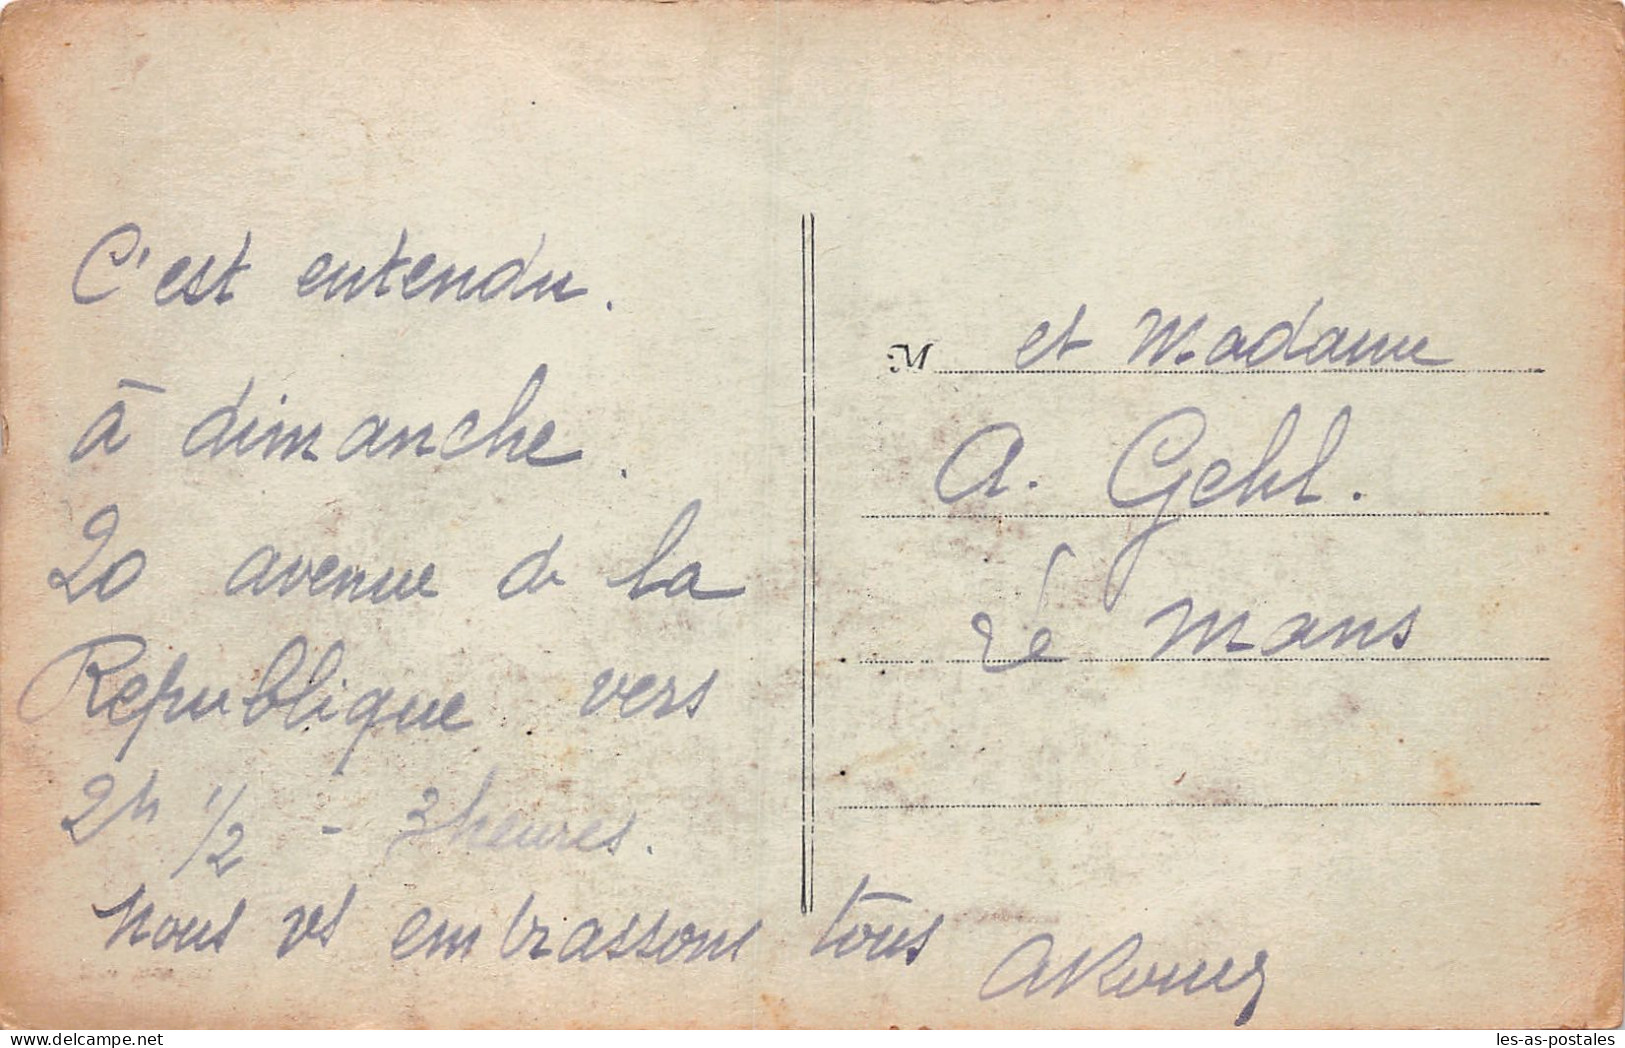 C'est entendu.
à dimanche.
20 avenue de la
Republique vers
2h 1/2 - 3 heures.
Nous vs embrassons tous
M et Madame
A. Gehl.
Le Mans
delcampe.net
les-as-postales